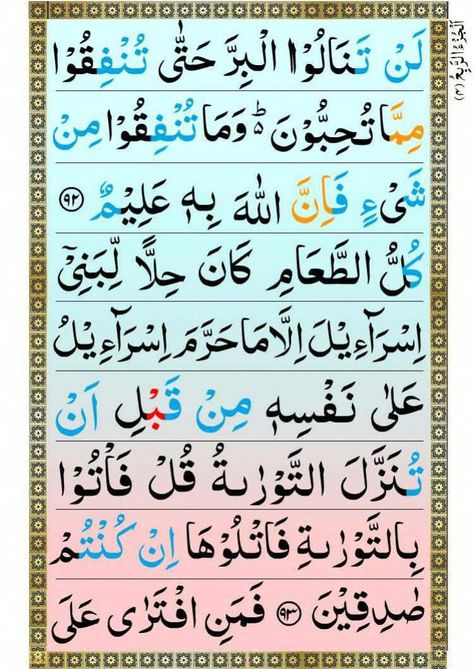 اَلْجُزْءُ الرَّابِعُ (٤)
لَنْ تَنَالُوا الْبِرَّ حَتّٰى تُنْفِقُوْا
مِمَّا تُحِبُّوْنَ ؕ وَمَا تُنْفِقُوْا مِنْ
شَیْءٍ فَاِنَّ اللّٰهَ بِهٖ عَلِيْمٌ ﴿٩٢﴾
كُلُّ الطَّعَامِ كَانَ حِلًّا لِّبَنِیْۤ
اِسْرَآءِيْلَ اِلَّا مَا حَرَّمَ اِسْرَآءِيْلُ
عَلٰى نَفْسِهٖ مِنْ قَبْلِ اَنْ
تُنَزَّلَ التَّوْرٰىةُ قُلْ فَاْتُوْا
بِالتَّوْرٰىةِ فَاتْلُوْهَا اِنْ كُنْتُمْ
صٰدِقِيْنَ ﴿٩٣﴾ فَمَنِ افْتَرٰى عَلَى